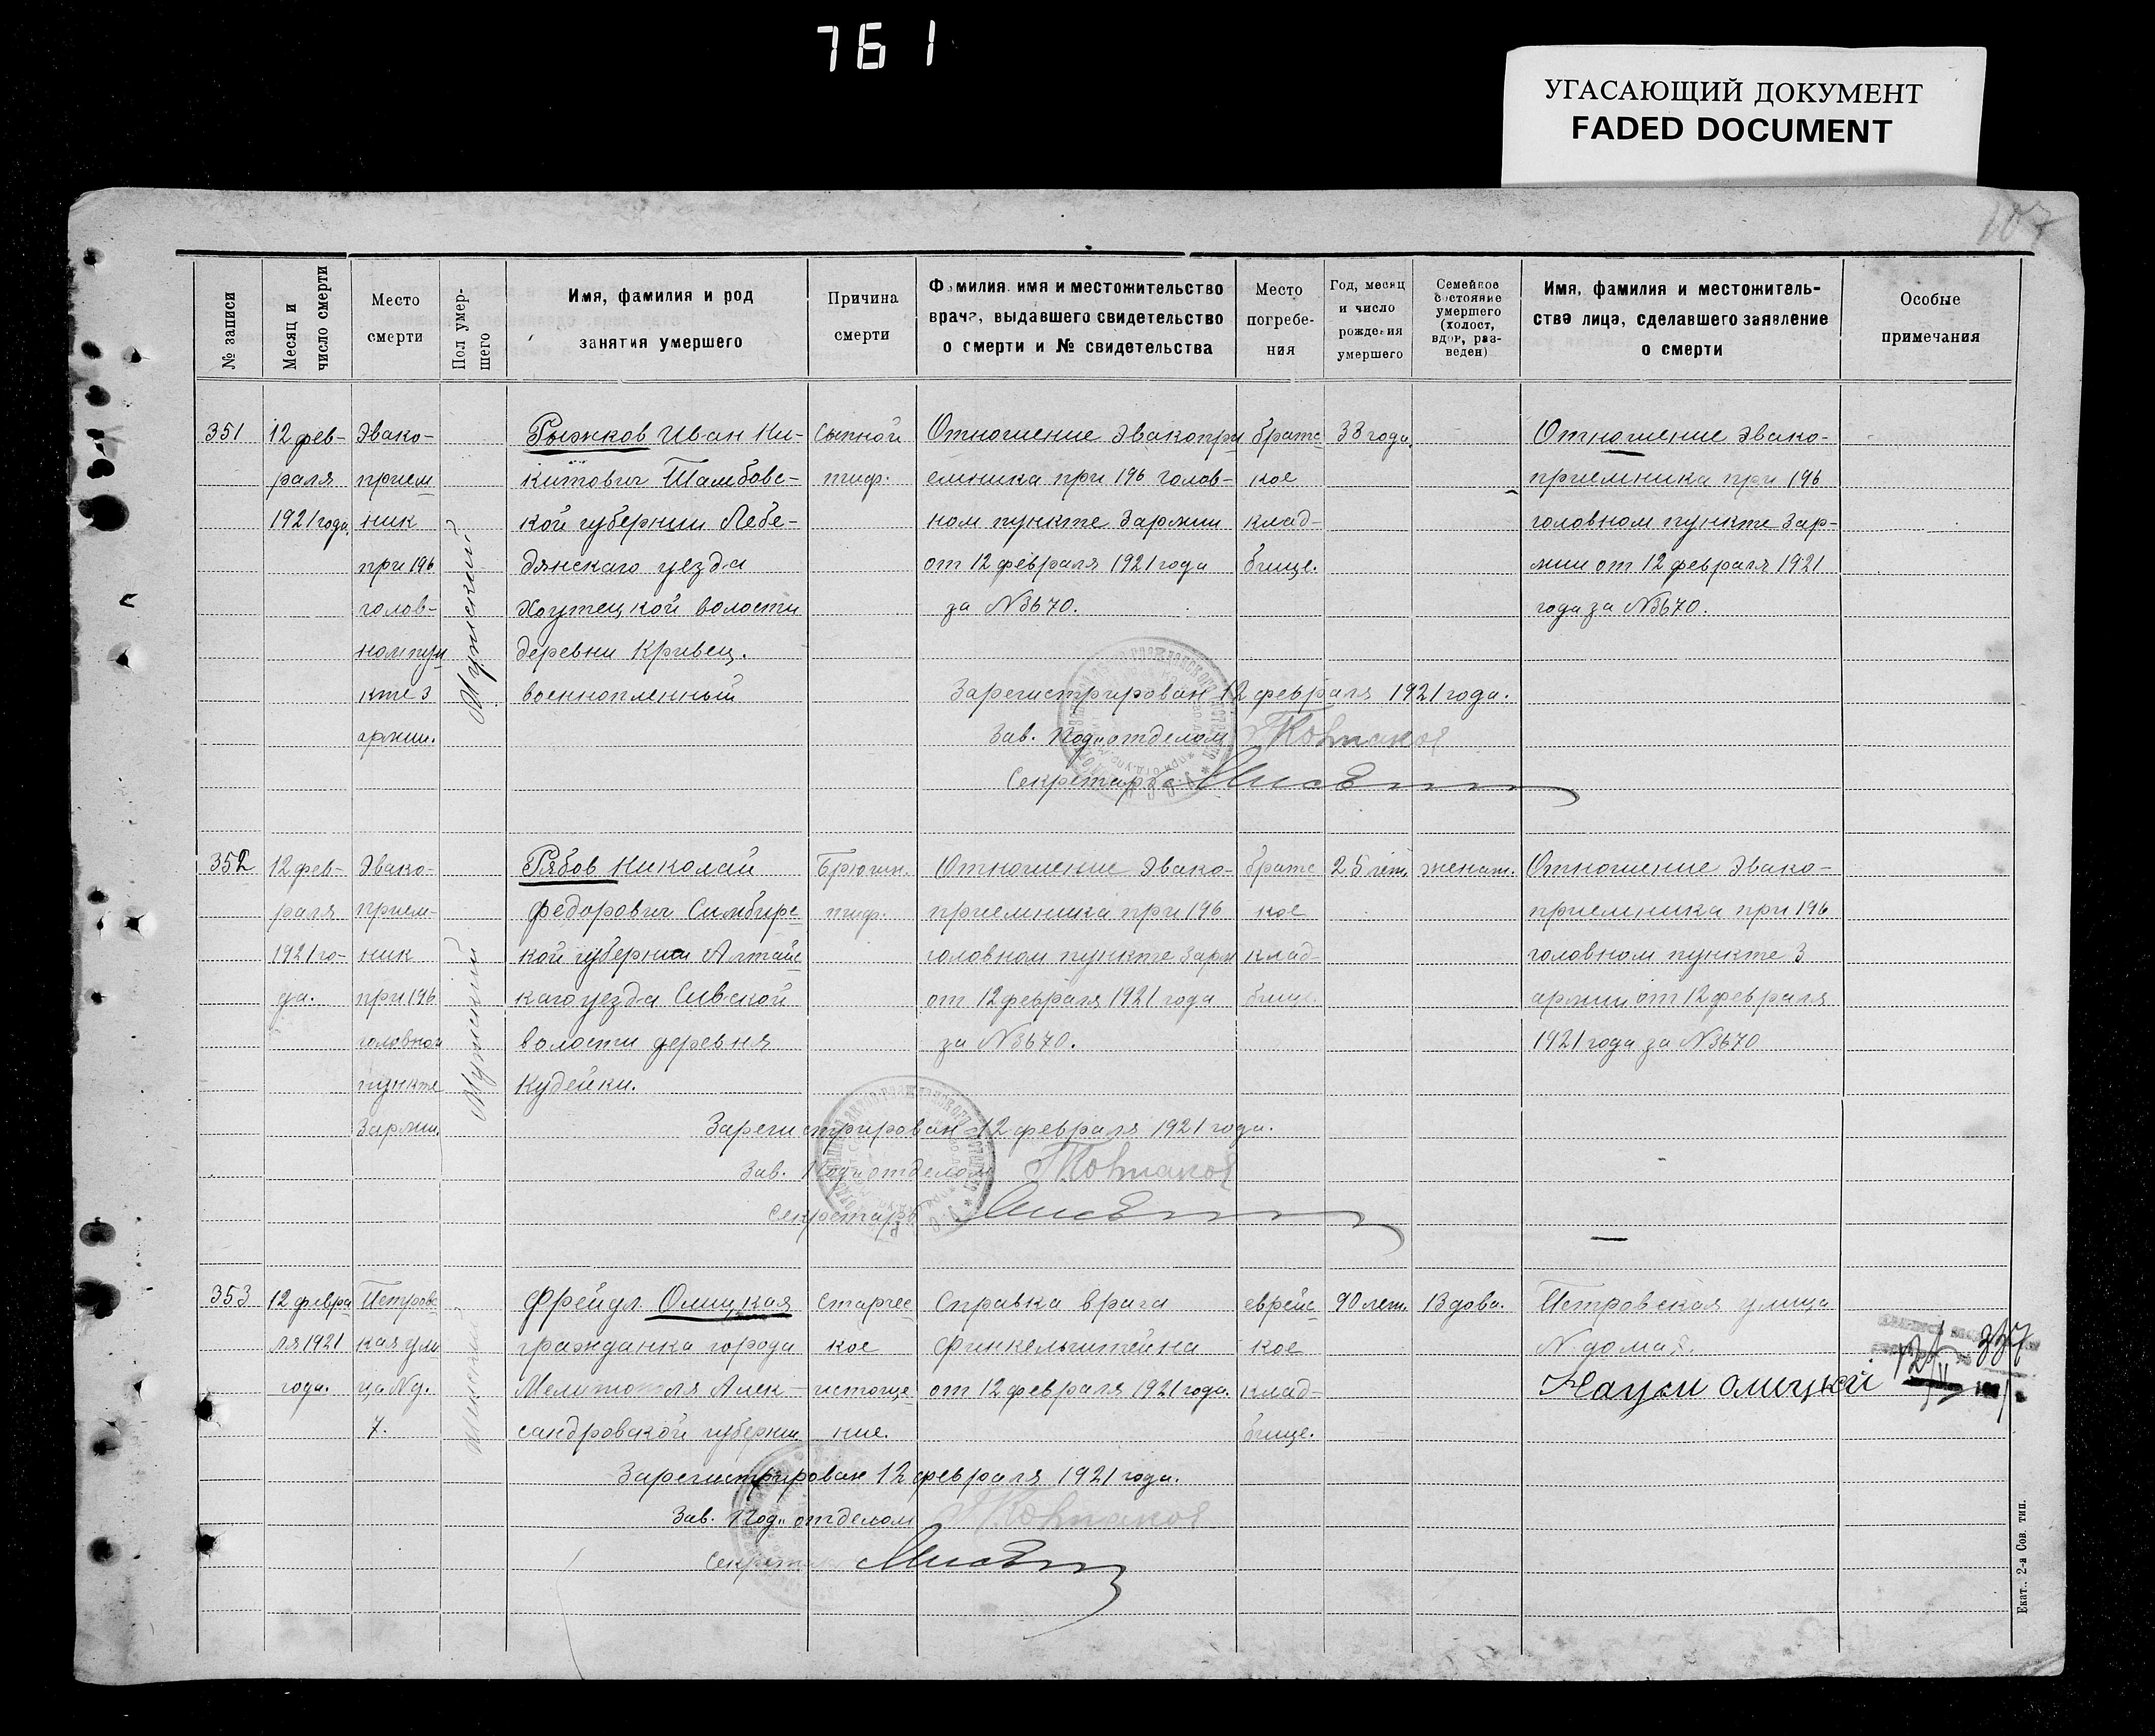 761
УГАСАЮЩИЙ ДОКУМЕНТ
FADED DOCUMENT
107
№ записи
Месяц и
число смерти
Место
смерти
Пол умер-
шего
Имя, фамилия и род
занятия умершего
Причина
смерти
Фамилия, имя и местожительство
врача, выдавшего свидетельство
о смерти и № свидетельства
Место
погребе-
ния
Год, месяц
и число
рождения
умершего
Семейное
состояние
умершего
(холост,
вдов, раз-
веден)
Имя, фамилия и местожитель-
ство лица, сделавшего заявление
о смерти
Особые
примечания
351
12 фев-
раля
1921 года.
Эвако-
прием
ник
при 196
голов-
ном пун
кте 3
армии.
Мужской
Рыжков Иван Ни-
китович Тамбовс-
кой губернии Лебе-
дянскаго уезда
волости
деревни Кривец.
военнопленный
Сыпной
тиф.
Отношение Эвакопри
емника при 196 голов-
ном пункте 3 армии
от 12 февраля 1921 года
за N 3670.
братс
кое
клад-
бище.
38 года.
Отношение Эвако-
приемника при 196
головном пункте 3 ар-
мии от 12 февраля 1921
года за N 3670.
Зарегистрирован 12 февраля 1921 года.
Зав. Подъотделом
Секретарь
352
12 фев-
раля
1921 го-
да.
Эвако-
прием-
ник
при 196
головном
пункте
3 армии.
Мужской
Рябов Николай
Федорович Симбирс
кой губернии Алтайс
каго уезда Сивской
волости деревня
Кудейки.
Брюшн.
тиф.
Отношение Эвако-
приемника при 196
головном пункте 3 арм
от 12 февраля 1921 года
за N 3670.
братс
кое
клад-
бище.
25 лет.
женат.
Отношение Эвако-
приемника при 196
головном пункте 3
армии от 12 февраля
1921 года за N 3670
Зарегистрирован 12 февраля 1921 года.
Зав. Подъотделом
Секретарь
353
12 февра
ля 1921
года.
Петровс
кая ули
ца N д.
7.
Женский
Фрейдл Олицкая
гражданка города
Мелитополя Алек-
сандровской губернии
Старчес
кое
истоще
ние.
Справка врача
Финкельштейна
от 12 февраля 1921 года.
еврейс
кое
клад-
бище.
90 лет.
Вдова.
Петровская улица
N дома
Наум Олицкий
337
Зарегистрирован 12 февраля 1921 года.
Зав. Подъотделом
Секретарь
Екат., 2-я Сов. тип.